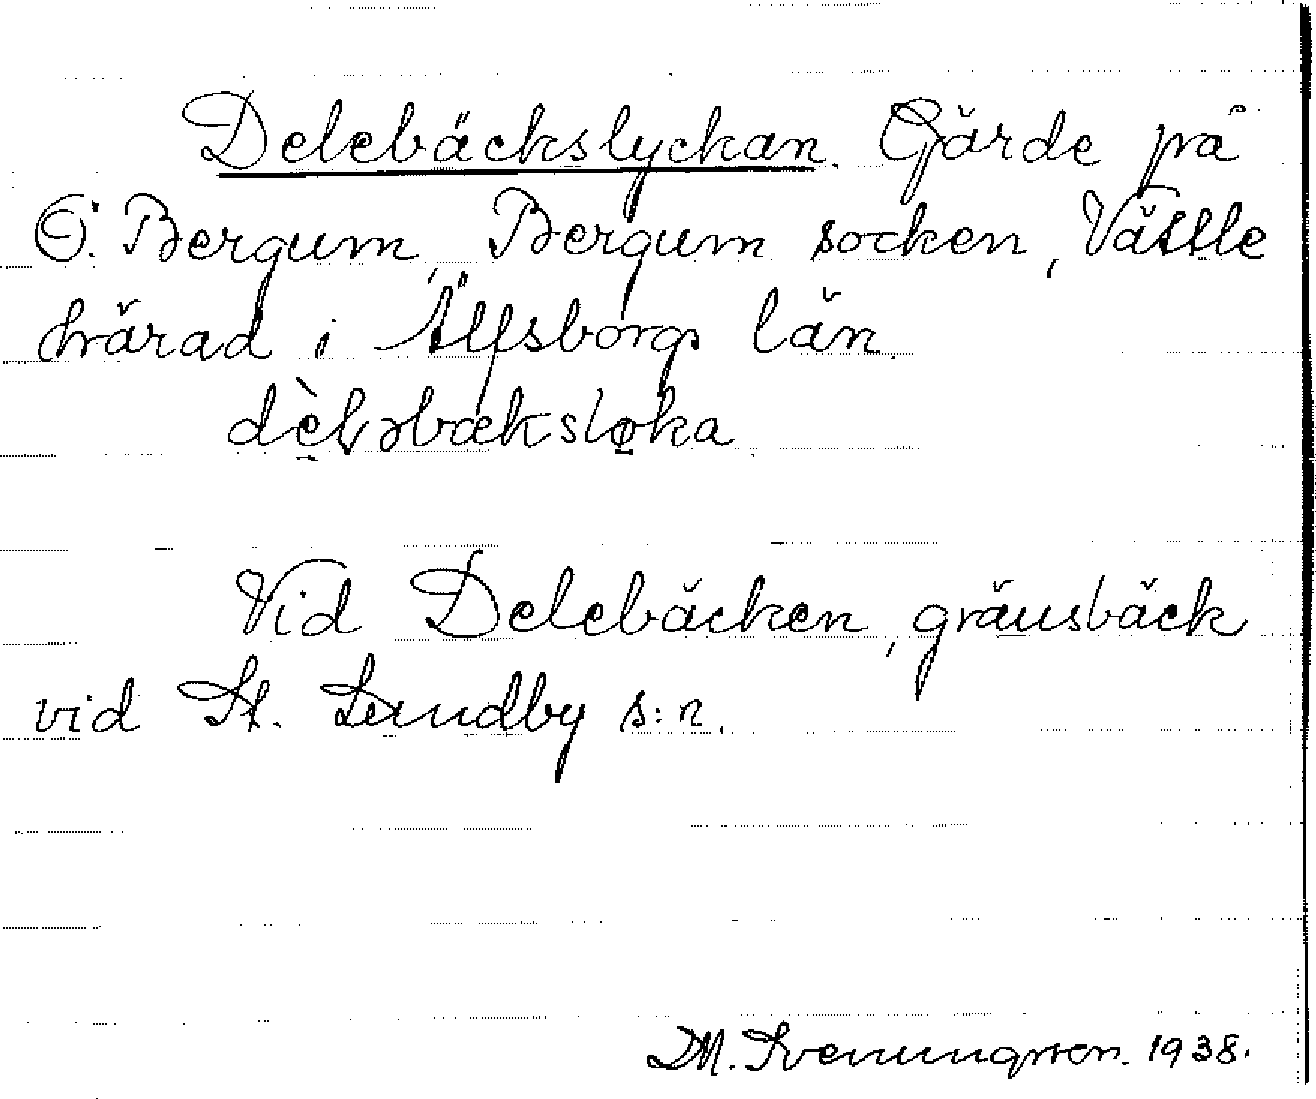 Delebäckslyckan. Gärde på
Ö. Bergum, Bergum socken, Vättle
härad i Älfsborgs län.
dèləbæksløka
Vid Delebäcken, gränsbäck
vid St. Lundby s:n.
D.M. Svenungsson. 1938.